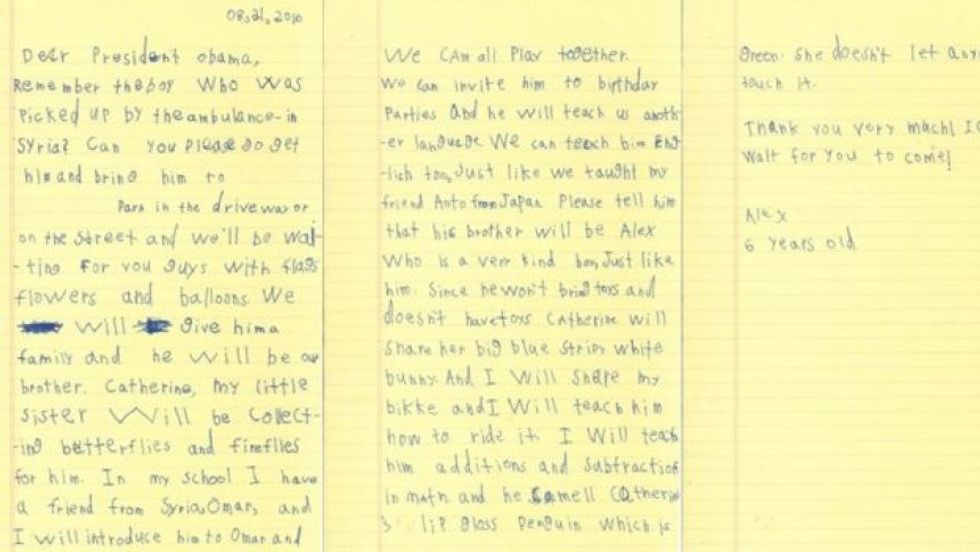 08.21.2016
Dear President obama,
Remember the boy who was
Picked up by the ambulance in
Syria? Can you please go get
him and bring him to
Park in the driveway or
on the street and we'll be wai-
-ting for you guys with flags
flowers and balloons. We
will give him a
family and he will be our
brother. Catherine, my little
sister will be collect-
-ing butterflies and fireflies
for him. In my school I have
a friend from Syria, Omar, and
I will introduce him to Omar and
We can all play together.
We can invite him to birthday
parties and he will teach us anoth-
-er language. We can teach him Eng-
-lish too, Just like we taught my
friend Aoto from Japan. Please tell him
that his brother will be Alex
who is a very kind boy, Just like
him. Since he won't bring toys and
doesn't have toys Catherine will
share her big blue stripy white
bunny. And I will share my
bikke and I will teach him
how to ride it. I will teach
him additions and subtraction
in math and he smell Catherine
's lip gloss penguin which is
Green. She doesn't let any
touch it.
Thank you very much! I
wait for you to come!
Alex
6 years old